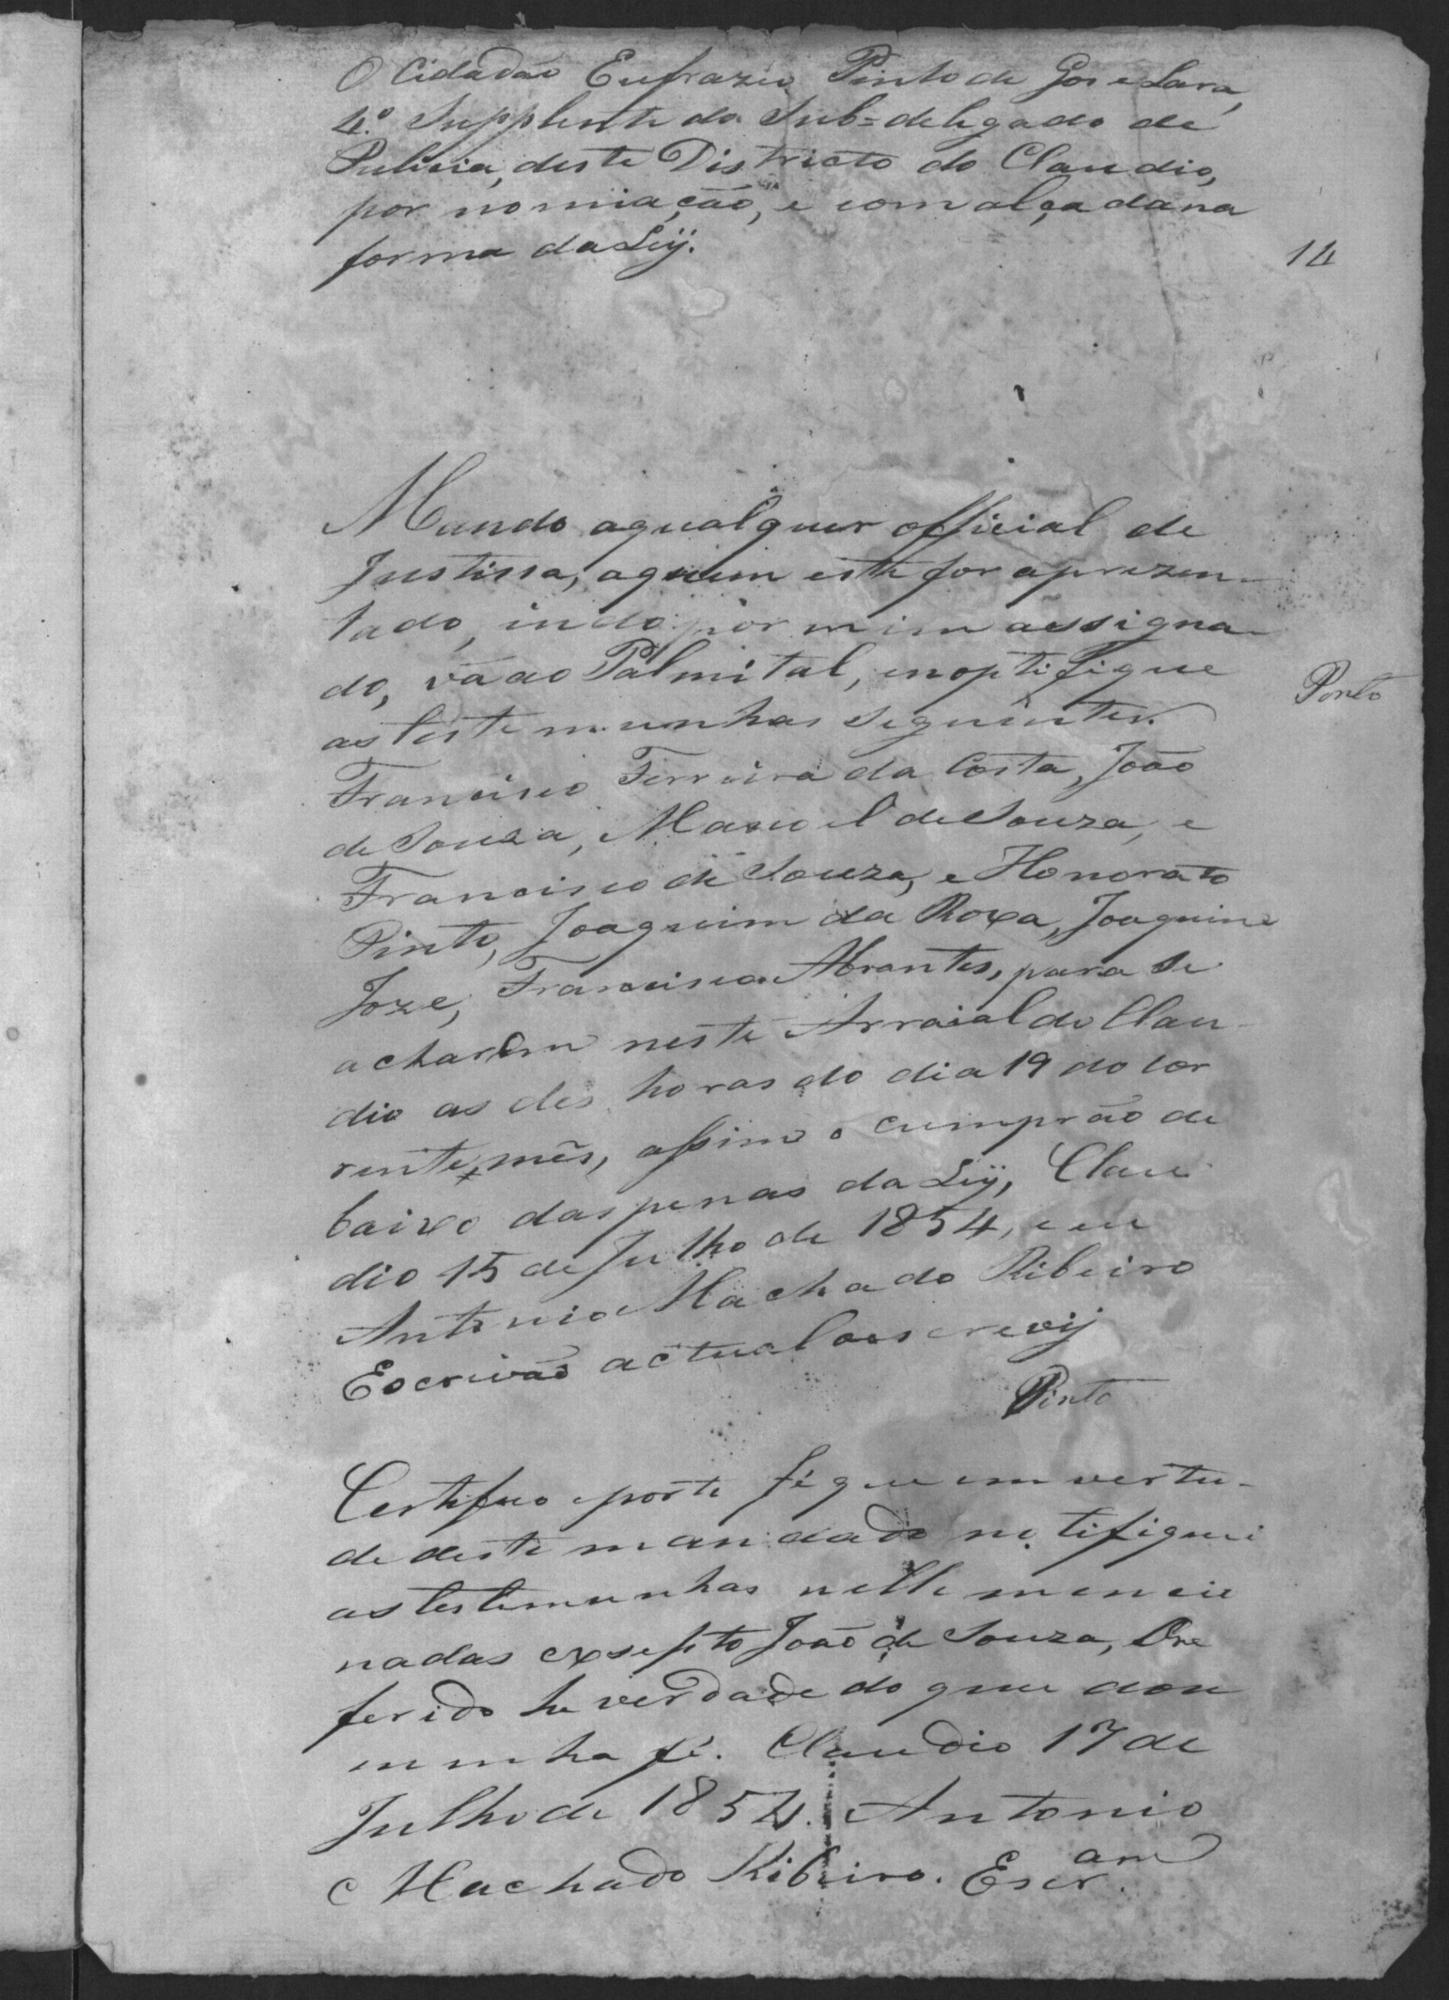 O Cidadão Eufrazio Pinto de Gos e Lara,
4.º Supplente do Sub=delegado de
Pulicia, deste Districto do Claudio,
por nomiação, e com alçada na
forma da Leÿ.
14
Mando aqualquer official de
Justissa, aquem este for aprezen-
tado, indo por mim assigna-
do, vá ao Palmital, e noptifique
as testemunhas seguintes.
Ponto
Francisco Ferreira da Costa, João
de Souza, Manoel de Souza, e
Francisco de Souza, e Honorato
Pinto, Joaquim da Roxa, Joaquim
Joze, Francisco Abrantes, para se
acharem neste Arraial do Clau-
dio as des horas do dia 19 do cor
rente mês, assim o cumprão de
baixo das penas da Leÿ, Clau
dio 15 de Julho de 1854, e eu
Antonio Machado Ribeiro
Escrivão actual o escrevÿ
Pinto
Certifico e porto fé que em vertu-
de deste mandado notifiquei
as testemunhas nelle mencio
nadas exsepto João de Souza, Ore
ferido he verdade do que dou
minha fé. Claudio 17 de
Julho de 1854. Antonio
Machado Ribeiro. Escr.am